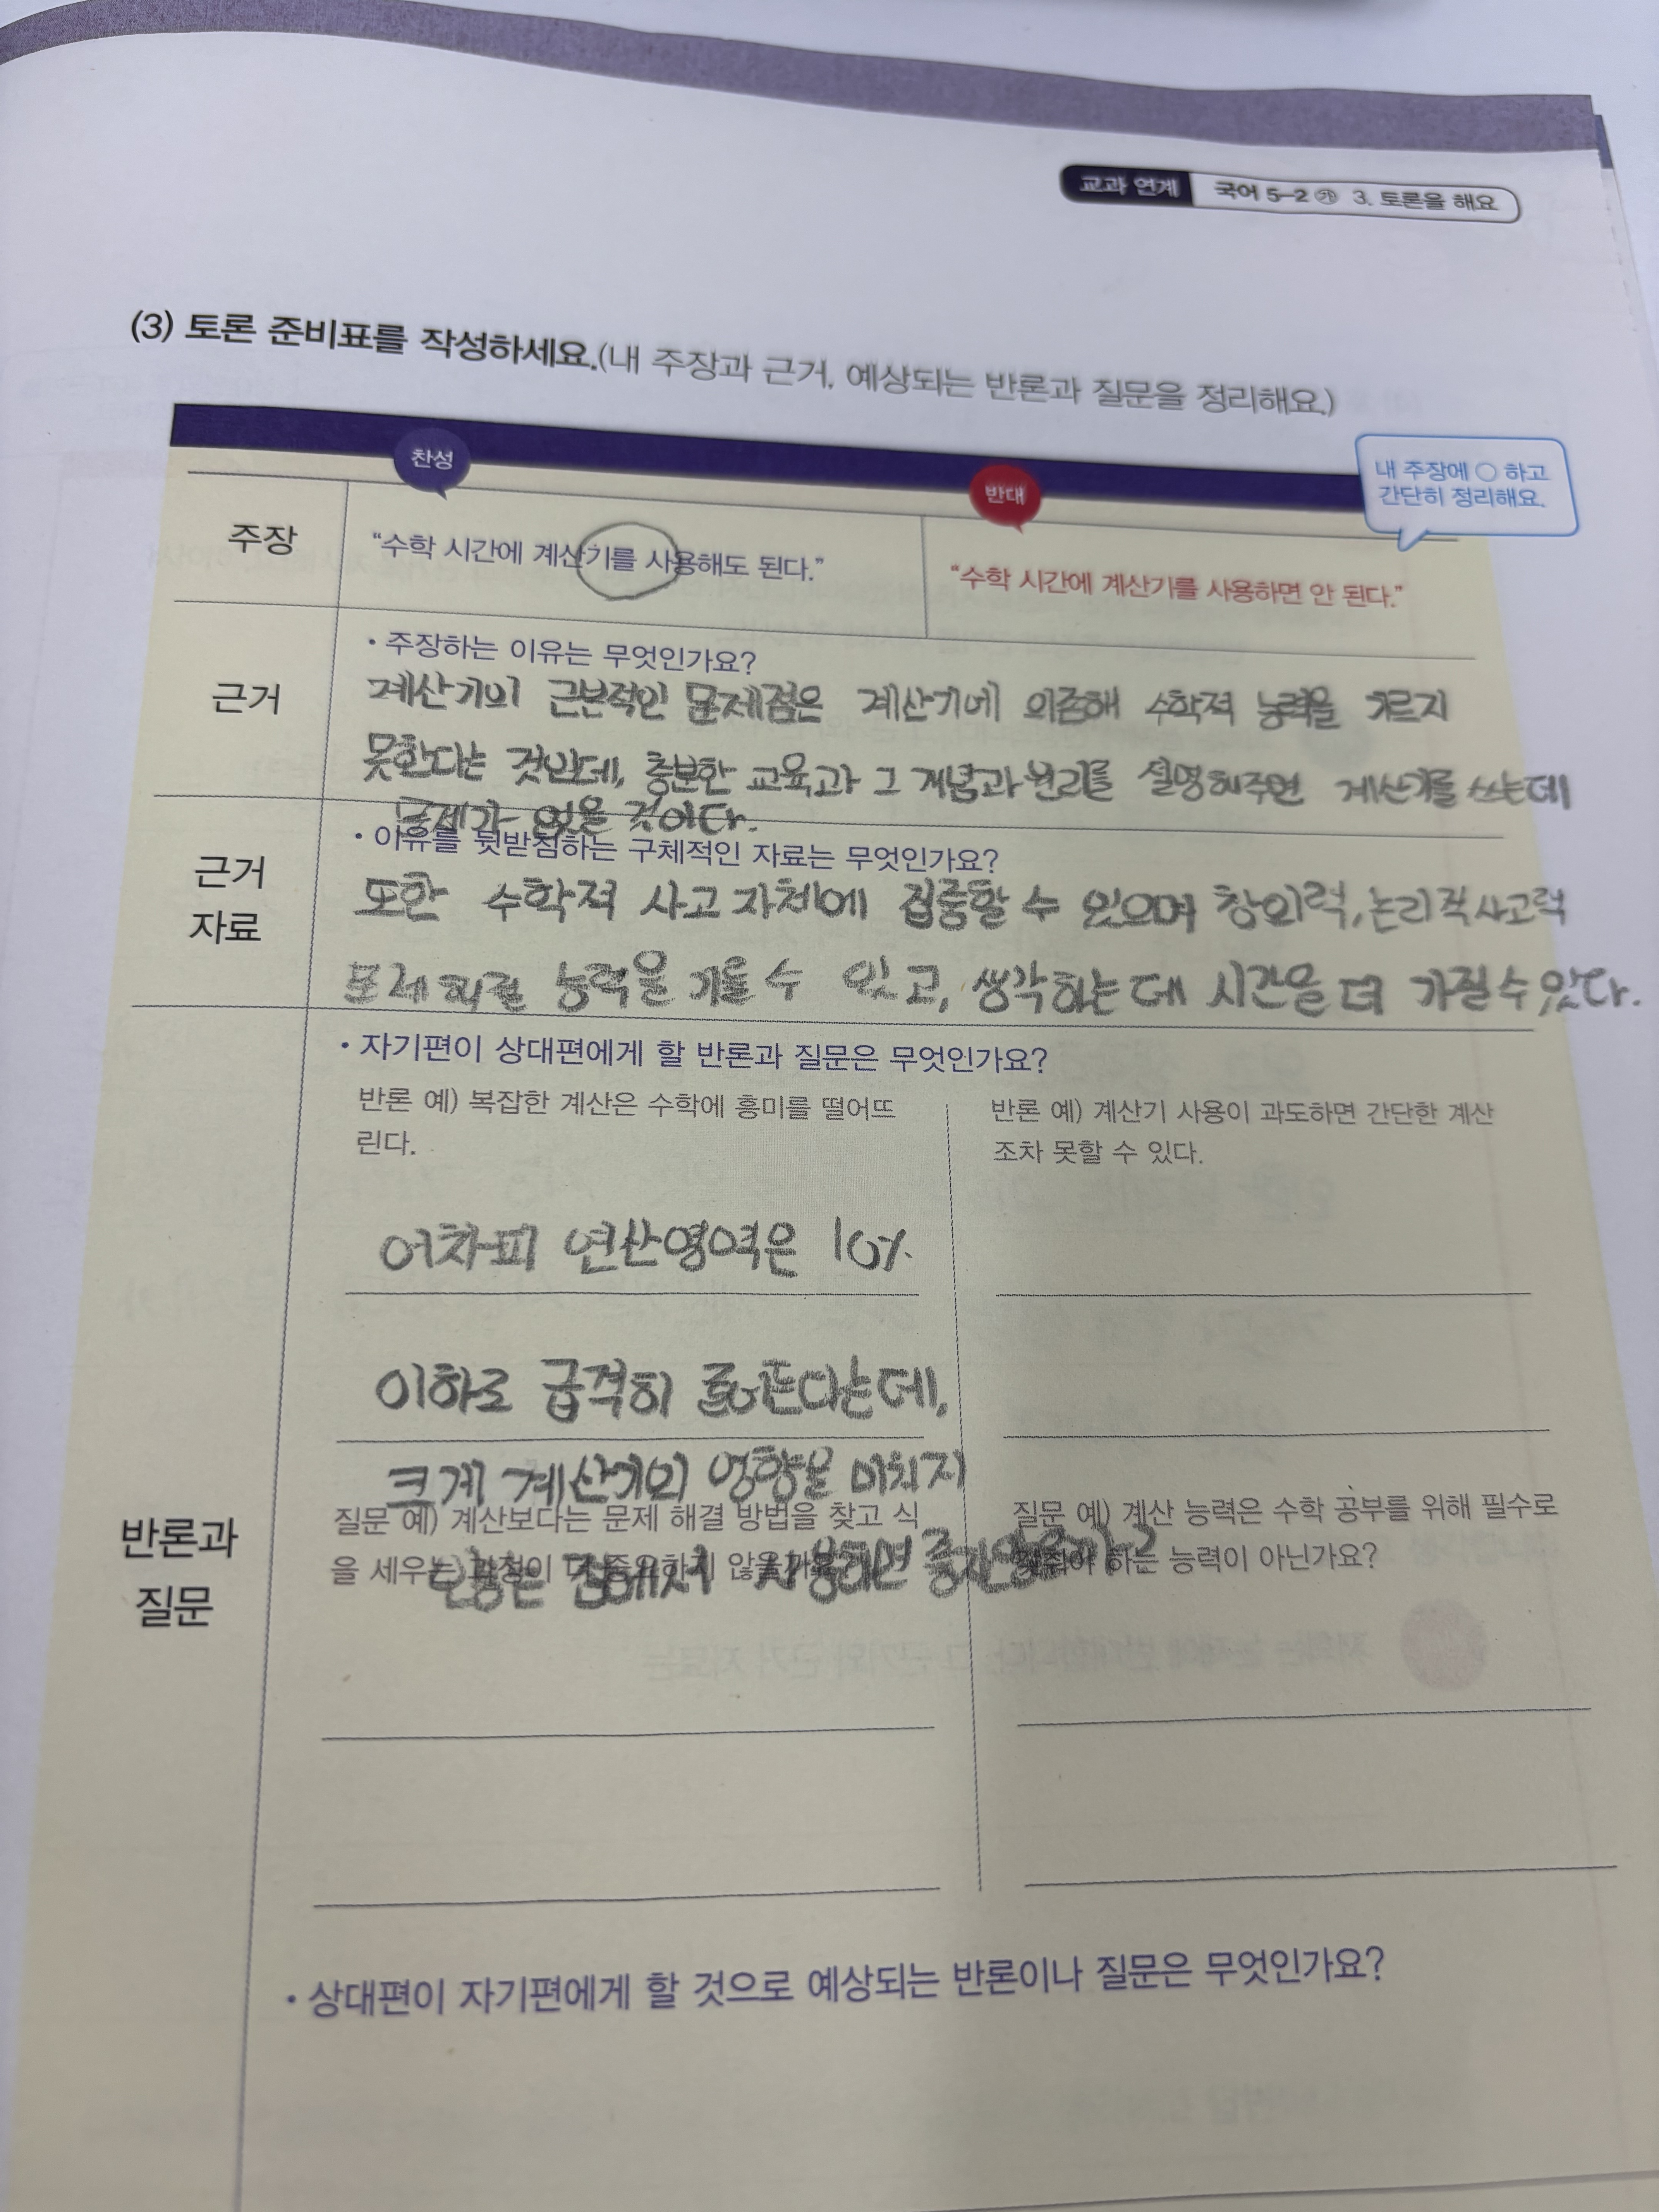 교과 연계 국어 5-2 ㉮ 3. 토론을 해요
(3) 토론 준비표를 작성하세요.(내 주장과 근거, 예상되는 반론과 질문을 정리해요.)
찬성
반대
내 주장에 ○ 하고
간단히 정리해요.
주장
"수학 시간에 계산기를 사용해도 된다."
"수학 시간에 계산기를 사용하면 안 된다."
근거
• 주장하는 이유는 무엇인가요?
계산기의 근본적인 문제점은 계산기에 의존해 수학적 능력을 기르지
못한다는 것인데, 충분한 교육과 그 개념과 원리를 설명해주면 계산기를 쓰는데
문제가 없을 것이다.
근거
자료
• 이유를 뒷받침하는 구체적인 자료는 무엇인가요?
또한 수학적 사고 자체에 집중할 수 있으며 창의력, 논리적 사고력
문제 해결 능력을 기를 수 있고, 생각하는 데 시간을 더 가질 수 있다.
반론과
질문
• 자기편이 상대편에게 할 반론과 질문은 무엇인가요?
반론 예) 복잡한 계산은 수학에 흥미를 떨어뜨
린다.
어차피 연산영역은 10%
이하로 급격히 줄어든다는데,
크게 계산기의 영향을 미치지
질문 예) 계산보다는 문제 해결 방법을 찾고 식
을 세우는 과정이 더 중요하지 않을까요?
않는 집에서 사용하면 좋지 않을까?
반론 예) 계산기 사용이 과도하면 간단한 계산
조차 못할 수 있다.
질문 예) 계산 능력은 수학 공부를 위해 필수로
갖춰야 하는 능력이 아닌가요?
• 상대편이 자기편에게 할 것으로 예상되는 반론이나 질문은 무엇인가요?